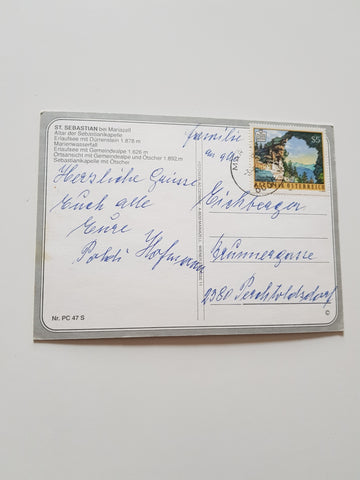 ST. SEBASTIAN bei Mariazell
Altar der Sebastianikapelle
Erlaufsee mit Dürrenstein 1.878 m
Marienwasserfall
Erlaufsee mit Gemeindealpe 1.626 m
Ortsansicht mit Gemeindealpe und Ötscher 1.892 m
Sebastianikapelle mit Ötscher
Herzliche Grüsse
Euch alle
Eure
Poldi Hofmann
Nr. PC 47 S
S5
ÖSTERREICH
Familie
Eichberger
Brunnergasse
2380 Perchtoldsdorf
©